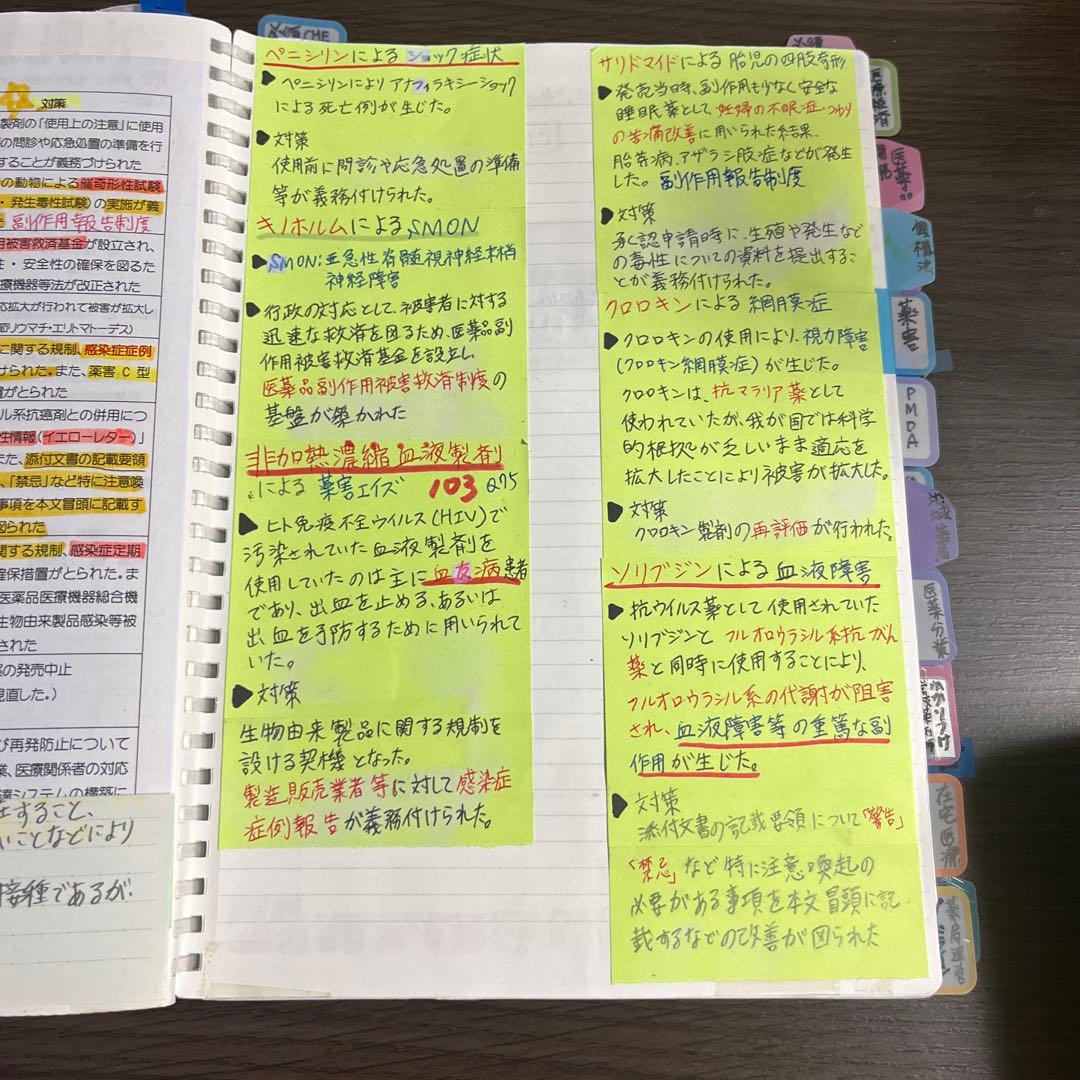 対策
製剤の「使用上の注意」に使用
の問診や応急処置の準備を行
することが義務づけられた
の動物による催奇形性試験
・発生毒性試験)の実施が義
副作用報告制度
用被害救済基金が設立され、
性・安全性の確保を図るた
療機器等法が改正された
応拡大が行われて被害が拡大し
節リウマチ・エリトマトーデス)
に関する規制、感染症症例
けられた。また、薬害 C 型
置がとられた
ル系抗癌剤との併用につ
性情報(イエローレター)」
また、添付文書の記載要領
、「禁忌」など特に注意喚
事項を本文冒頭に記載す
図られた
関する規制、感染症定期
確保措置がとられた。ま
医薬品医療機器総合機
生物由来製品感染等被
された
薬の発売中止
見直した。)
び再発防止について
業、医療関係者の対応
達システムの構築に
在すること、
いことなどにより
接種であるが
ペニシリンによる ショック症状
▶ ペニシリンにより アナフィラキシーショック
による死亡例が生じた。
▶ 対策
使用前に問診や応急処置の準備
等が義務付けられた。
キノホルムによる、SMON
▶ SMON:亜急性脊髄視神経末梢
神経障害
▶ 行政の対応として、被害者に対する
迅速な救済を図るため、医薬品副
作用被害救済基金を設立し、
医薬品副作用被害救済制度の
基盤が築かれた
非加熱濃縮血液製剤
による 薬害エイズ 103 Q75
▶ ヒト免疫不全ウイルス(HIV)で
汚染されていた血液製剤を
使用していたのは主に血友病患者
であり、出血を止める、あるいは
出血を予防するために用いられて
いた。
▶ 対策
生物由来製品に関する規制を
設ける契機となった。
製造販売業者等に対して感染症
症例報告が義務付けられた。
サリドマイドによる 胎児の四肢奇形
▶ 発売当時、副作用も少なく安全な
睡眠薬として、妊婦の不眠症・つわり
の苦痛改善に用いられた結果、
胎芽病、アザラシ肢症などが発生
した。副作用報告制度
▶ 対策
承認申請時に、生殖や発生など
の毒性についての資料を提出するこ
とが義務付けられた。
クロロキンによる 網膜症
▶ クロロキンの使用により、視力障害
(クロロキン網膜症)が生じた。
クロロキンは、抗マラリア薬として
使われていたが、我が国では科学
的根拠が乏しいまま適応を
拡大したことにより被害が拡大した。
▶ 対策
クロロキン製剤の再評価が行われた。
ソリブジンによる血液障害
▶ 抗ウイルス薬として使用されていた
ソリブジンと フルオロウラシル系抗がん
薬と同時に使用することにより、
フルオロウラシル系の代謝が阻害
され、血液障害等の重篤な副
作用が生じた。
▶ 対策
添付文書の記載要領について「警告」
「禁忌」など特に注意喚起の
必要がある事項を本文冒頭に記
載するなどの改善が図られた
必須 CHE
必須
医療経済
薬害
PMDA
医薬分業
かかりつけ
在宅医療
薬局運営